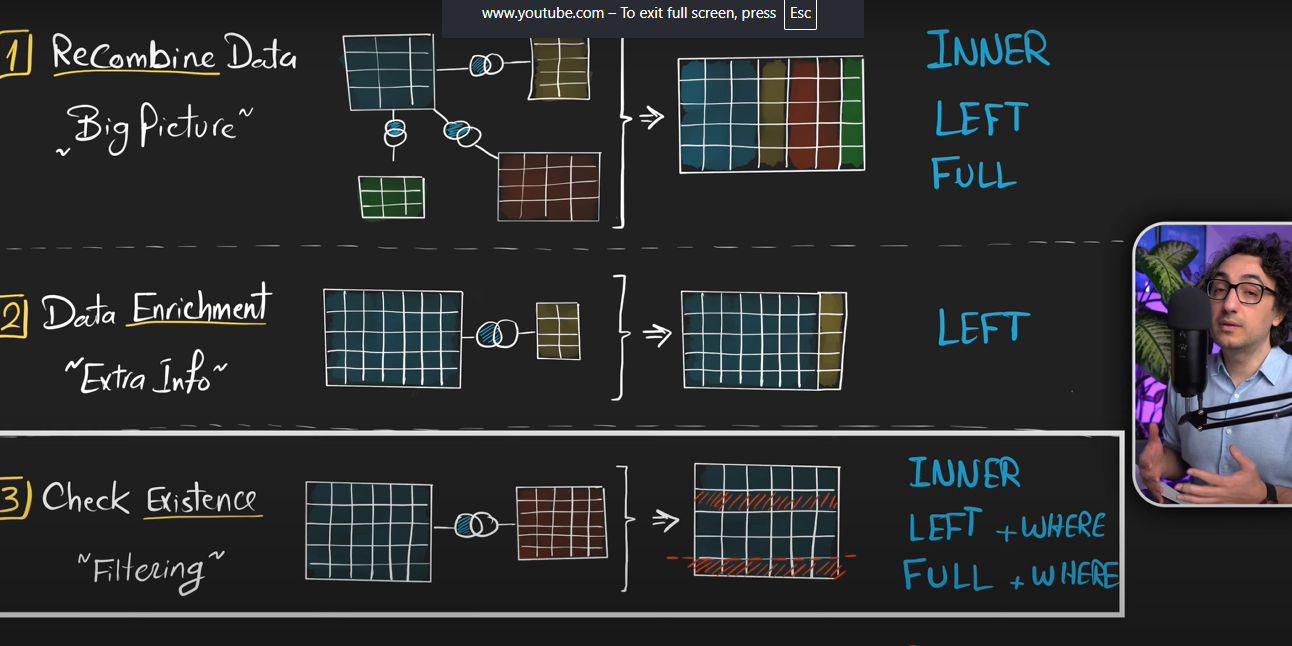 www.youtube.com – To exit full screen, press Esc
1) ReCombine Data
~Big Picture~
INNER
LEFT
FULL
2) Data Enrichment
~Extra Info~
LEFT
3) Check Existence
~Filtering~
INNER
LEFT + WHERE
FULL + WHERE